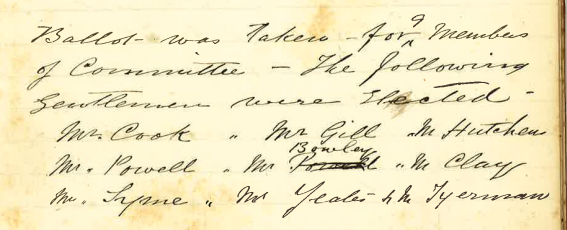 Ballot was taken - for 9 Members
of Committee - The following
Gentlemen were Elected -
Mr. Cook " Mr Gill " M Hutchens
Bowley
Mr. Powell " Mr Powell " M Clay
Mr. Syme " Mr Yeates & M Tyerman